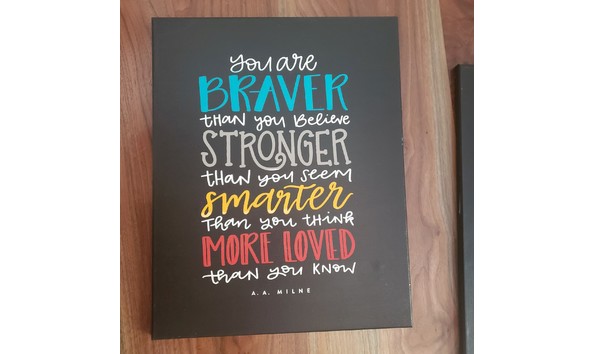 you are
BRAVER
than you Believe
STRONGER
than you seem
smarter
Than you think
MORE LOVED
than you know
A. A. MILNE